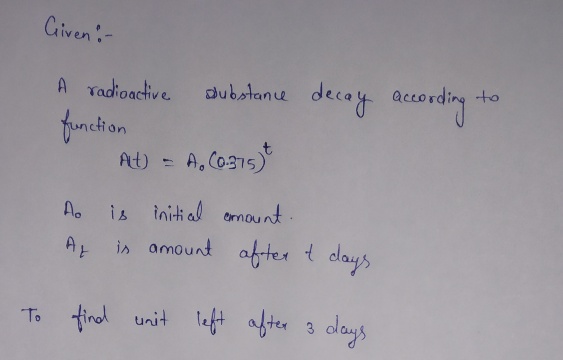 Given :-
A radioactive substance decay according to
function
A(t) = A₀ (0.375)ᵗ
A₀ is initial amount.
Aₜ is amount after t days
To find unit left after 3 days